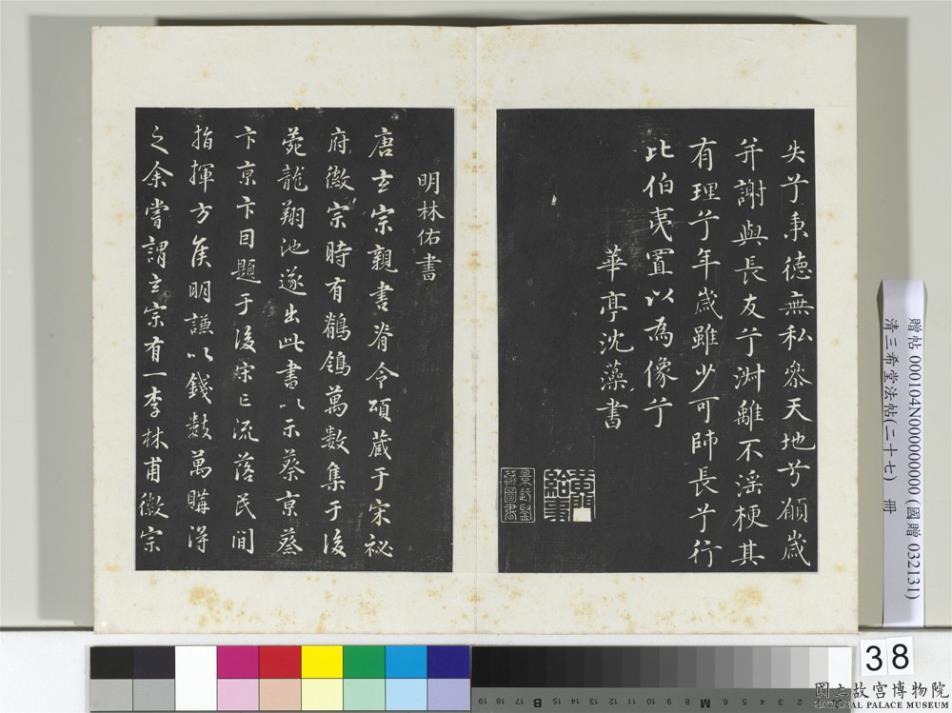 失兮秉德無私參天地兮願歲
并謝與長友兮淋離不淫梗其
有理兮年歲雖少可師長兮行
比伯夷置以為像兮
華亭沈藻書
明林佑書
唐玄宗親書脊令頌藏于宋祕
府徽宗時有鶺鴒萬數集于後
苑龍翔池遂出此書以示蔡京蔡
卞京卞目題于後宋亡流落民間
指揮方侯明謙以錢數萬購得
之余嘗謂玄宗有一李林甫徽宗
贈帖 000104N000000000 (國贈 032131)
清三希堂法帖(二十七) 冊
38
國立故宮博物院
NATIONAL PALACE MUSEUM
19 18 17 16 15 14 13 12 11 10 9 8 7 6 5 4 3 2 1
B M